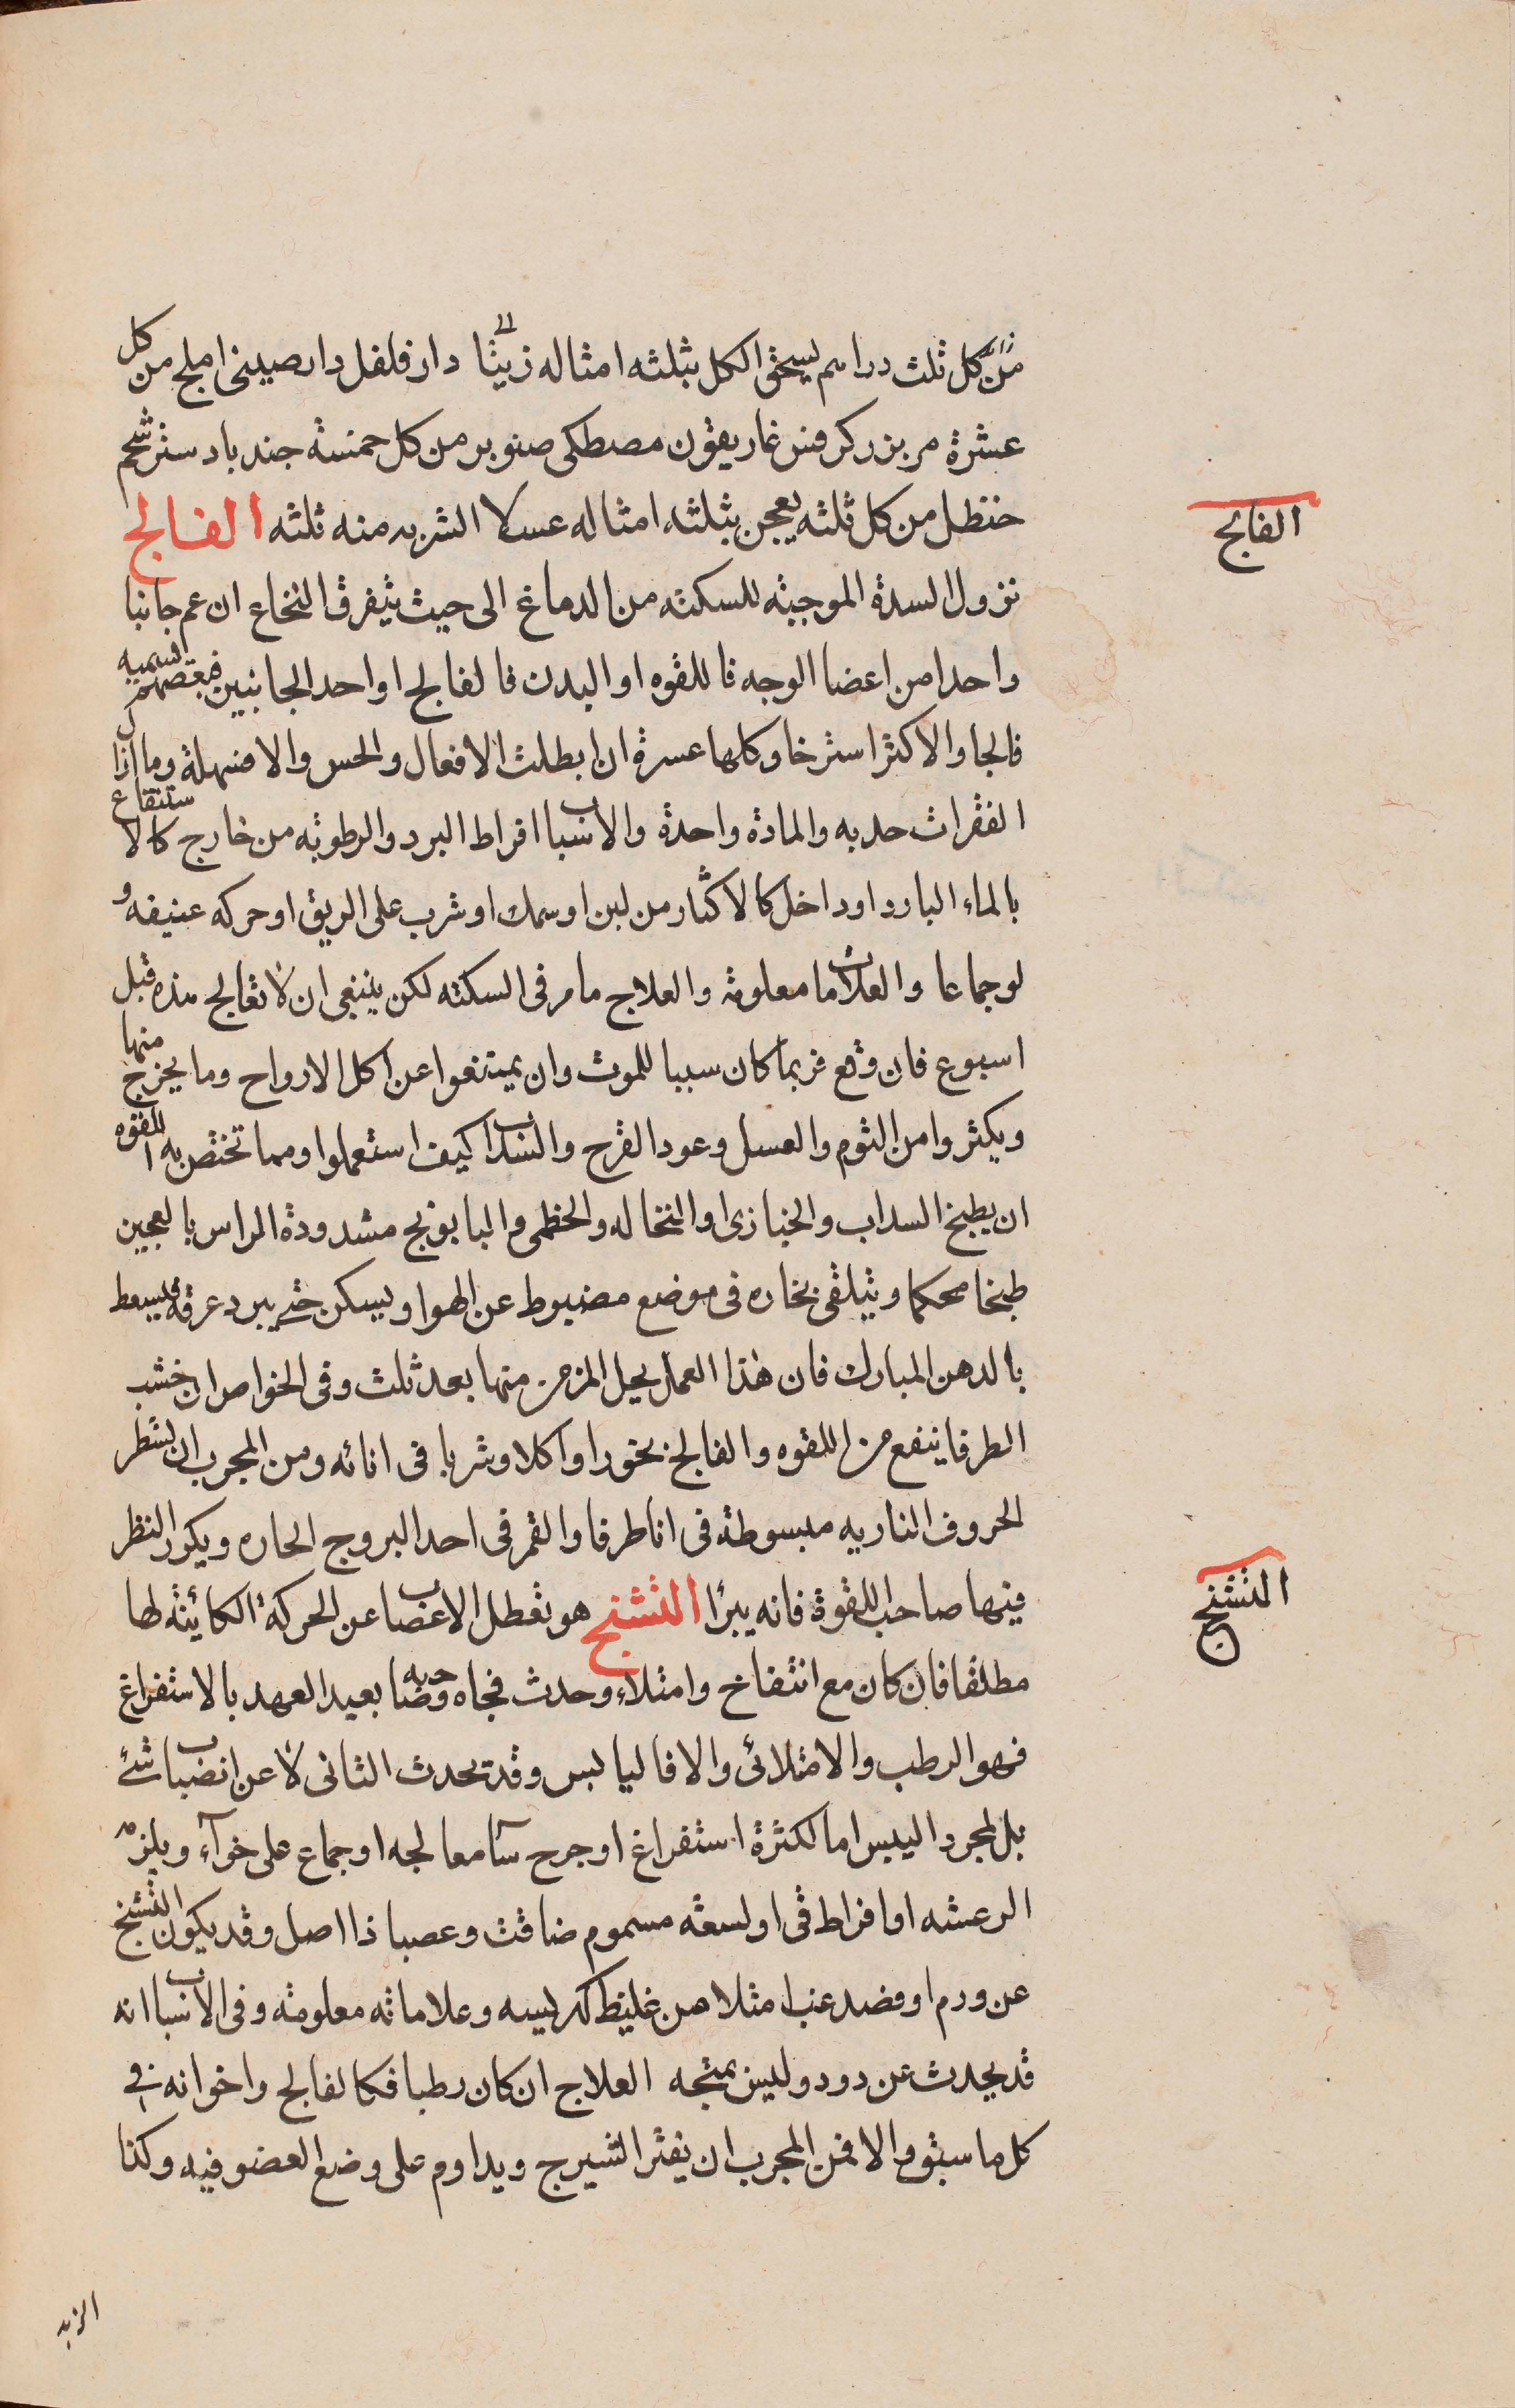 من كل ثلث دراهم يسحق الكل بثلثه امثاله زيتا دار فلفل دار صيني املج من كل
عشرة مر بزر كرفس غاريقون مصطكى صنوبر من كل خمسة جند بادستر شحم
حنظل من كل ثلثه يعجن بثلثه امثاله عسلا الشربه منه ثلثه الفالج
الفالج
نزول السدة الموجبه للسكته من الدماغ الى حيث يتفرق النخاع ان عم جانبا
واحدا من اعضا الوجه فاللقوه او البدن فالفالج او احد الجانبين فبعضهم يسميه
فالجا والاكثر استرخا وكلها عسرة ان ابطلت الافعال والحس والا فسهلة وما ازال
الفقرات حدبه والمادة واحدة والاسباب افراط البرد والرطوبه من خارج كالاستنقاع
بالماء البارد او داخل كالاكثار من لبن او سمك او شرب على الريق او حركه عنيفه و
لو جماعا والعلامات معلومة والعلاج ما مر فى السكته لكن ينبغى ان لا تعالج هذه قبل
اسبوع فان وقع فربما كان سببا للموت وان يمتنعوا عن اكل الارواح وما يخرج منها
ويكثروا من الثوم والعسل وعود القرح والسذاب كيف استعملوا ومما تختص به اللقوه
ان يطبخ السداب والخبازى او النخاله والخطمى والبابونج مشدودة الراس بالعجين
طبخا محكما ويتلقى بخاره فى موضع مضبوط عن الهوا ويسكن حتى يبرد عرقه فيسعط
بالدهن المبارك فان هذا العمل يحيل المزمن منها بعد ثلث وفى الخواص ان خشب
الطرفا ينفع من اللقوه والفالج بخورا واكلا وشربا فى انائه ومن المجرب ان يسطر
الحروف الناريه مبسوطة فى انا طرفا والقمر فى احد البروج الحاره ويكرر النظر
فيها صاحب اللقوة فانه يبرا التشنج هو تعطل الاعصاب عن الحركة الكائنه لها
التشنج
مطلقا فان كان مع انتفاخ وامتلاء وحدث فجاه وصاحبه بعيد العهد بالاستفراغ
فهو الرطب والامتلائى والا فاليابس وقد يحدث الثانى لا عن انصباب شئ
بل لمجرد اليبس اما لكثرة استفراغ او جرح سآ معالجه او جماع على خوآء ويلزمه
الرعشه او افراط قى او لسعة مسموم ضاقت وعصبا ذا اصل وقد يكون التشنج
عن ورم او فصد عند امتلا من غليظ كهريسه وعلاماته معلومه وفى الاسباب انه
قد يحدث عن دود وليس بمتجه العلاج ان كان رطبا فكالفالج واخوانه فى
كل ما سبق والا فمن المجرب ان يفتر الشيرج ويداوم على وضع العضو فيه وكذا
الزبد